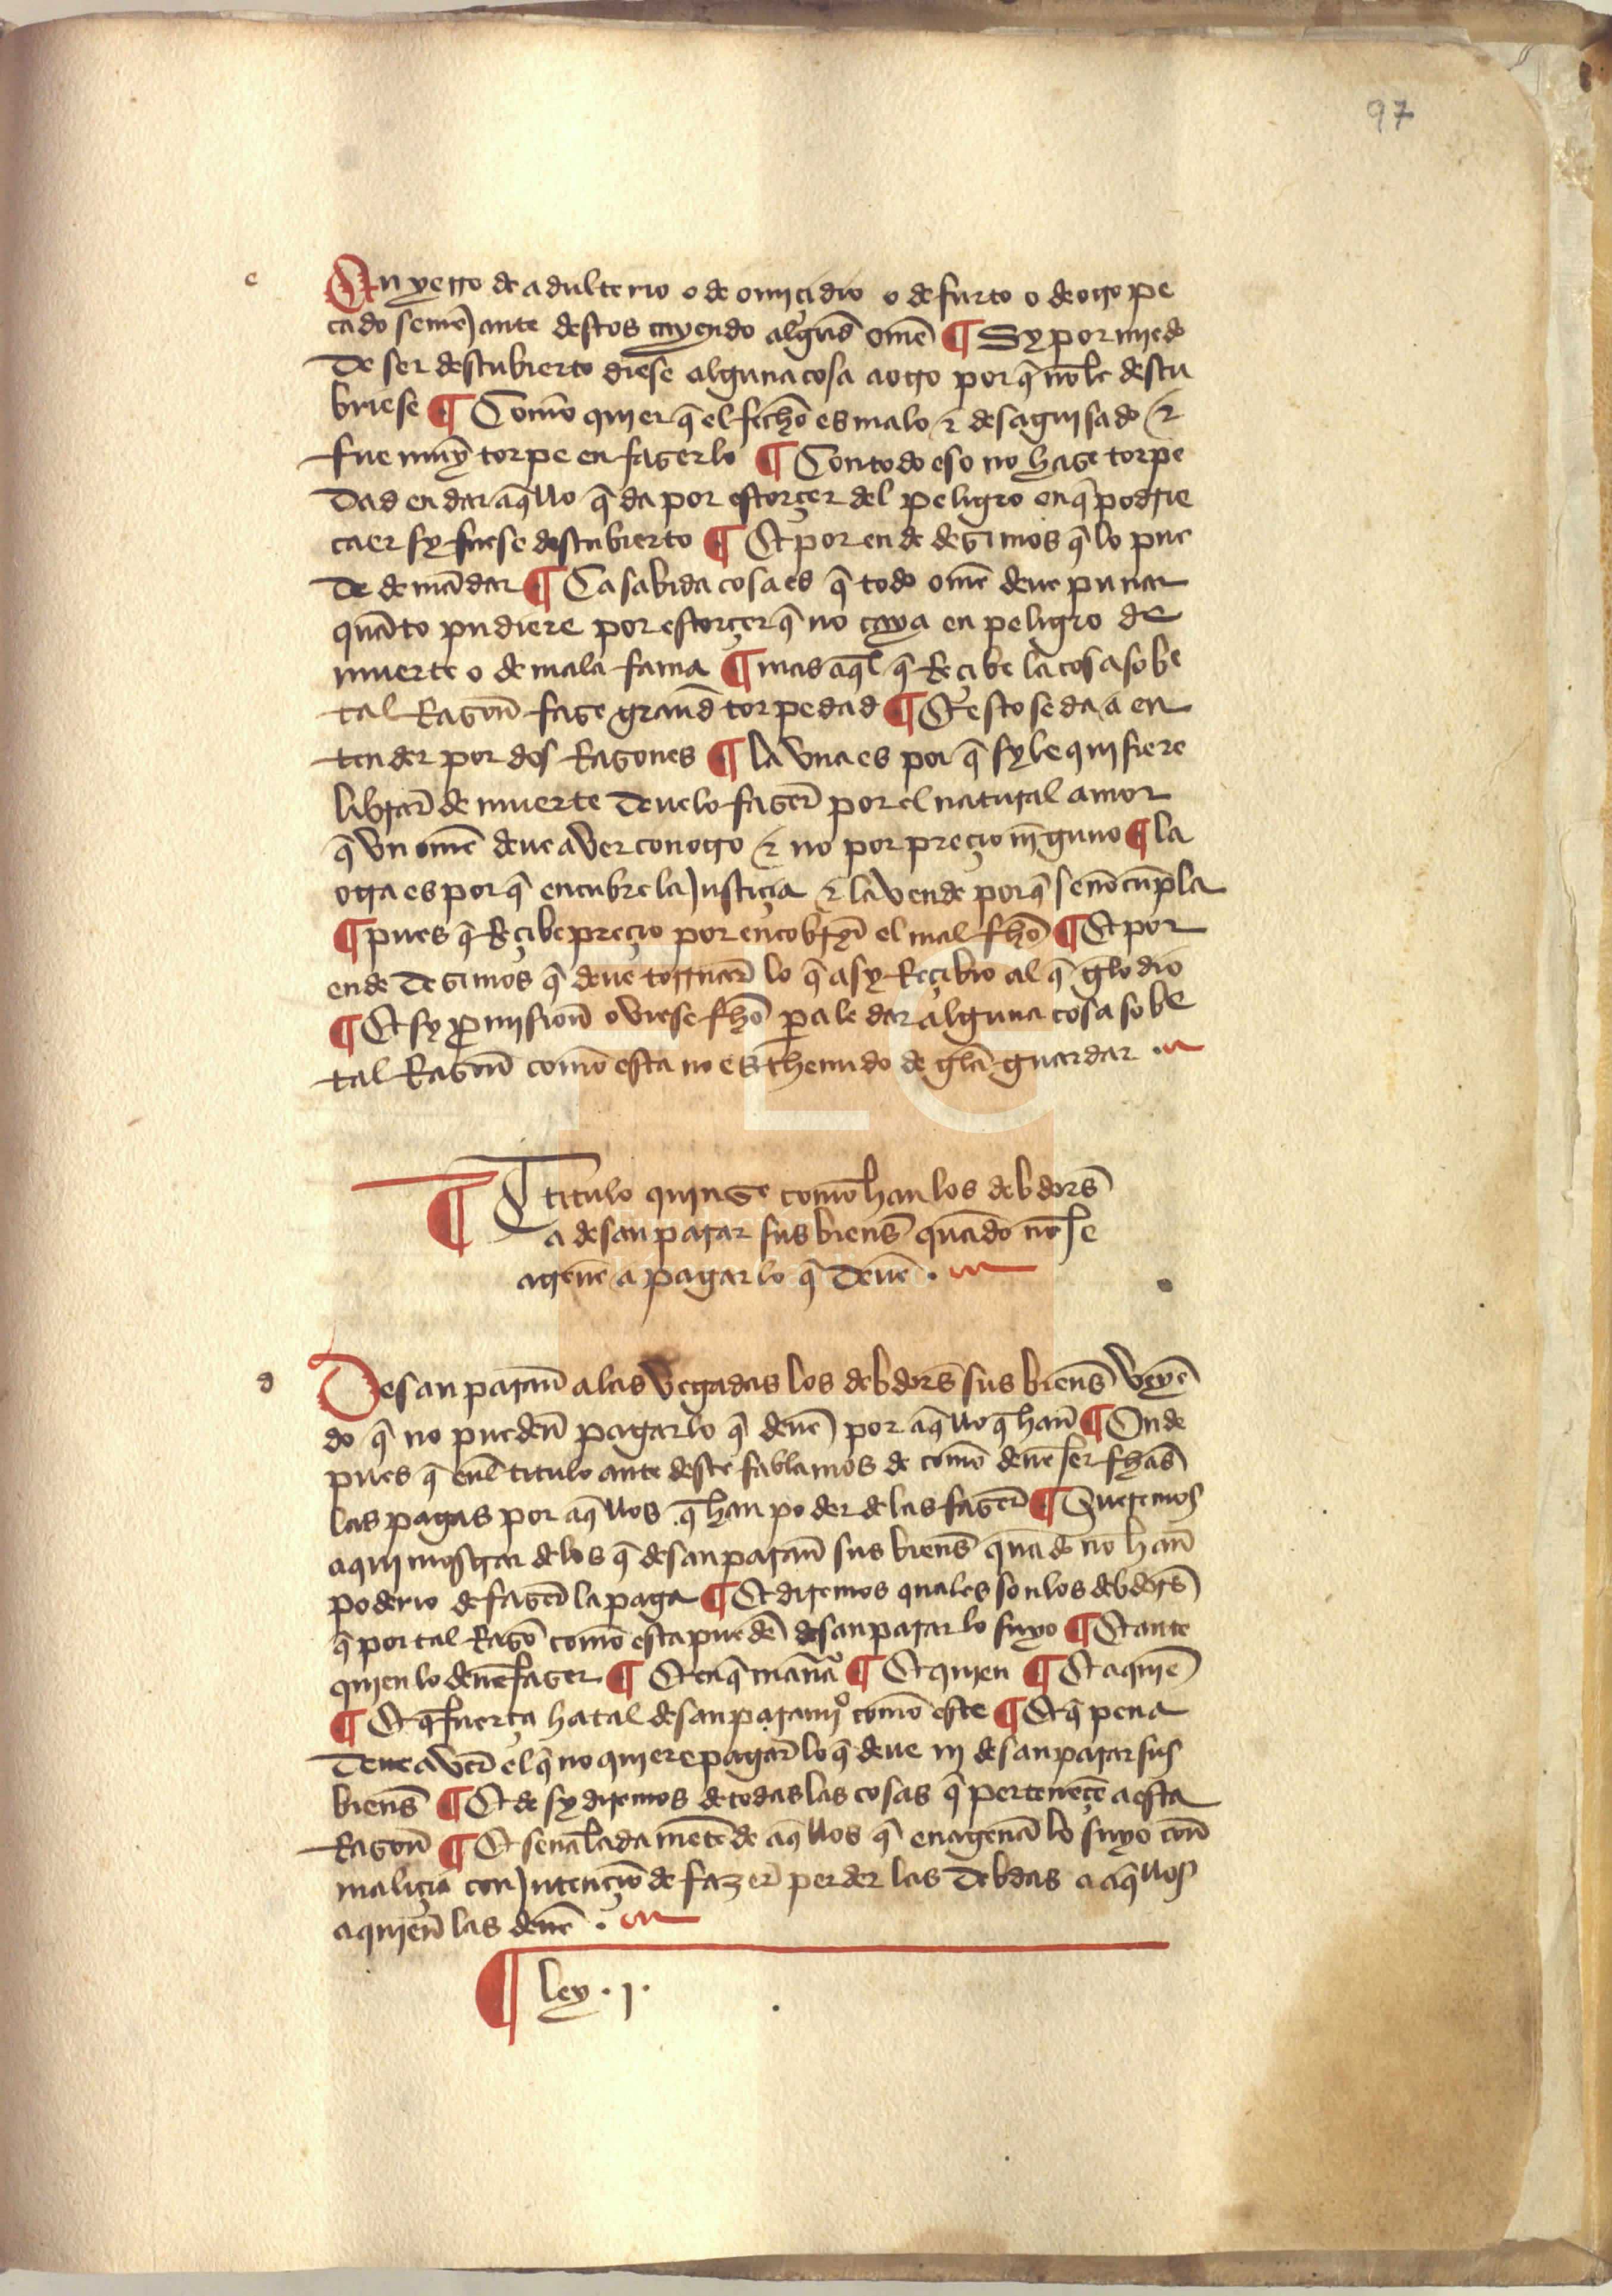 97
e
En yerro de adulterio o de omiçidio o de furto o de otro pe
cado semejante destos cayendo algund omē ¶ Sy por miedo
de ser descubierto diese alguna cosa a otro por q̄ nōle descu
briese ¶ Comō quier q̄ el fechō es malo ⁊ desaguisado ⁊
fue muy torpe en fazerlo ¶ Con todo eso no haze torpe
dad en dar aq̄llo q̄ da por estorçer del peligro en q̄ podrie
caer sy fuese descubierto ¶ Et por ende dezimos q̄ lo pue
de demādar ¶ Ca sabida cosa es q̄ todo omē deue punar
quāto pudiere por estorçer q̄ no caya en peligro de
muerte o de mala fama ¶ mas aq̄l q̄ Reçibe la cosa sobe
tal Razoñ faze grand torpedad ¶ Et esto se da a en
tender por dos Razones ¶ la vna es por q̄ sy le quisiere
librar de muerte deuelo fazer por el natural amor
q̄ vn omē deue aver con otro ⁊ no por preçio nīguno ¶ la
otra es por q̄ encubre la justiçia ⁊ la vende por q̄ se nō cūpla
¶ pues q̄ Reçibe preçio por encobryr el mal fhō ¶ Et por
ende dezimos q̄ deue tornar lo q̄ asy Reçibio al q̄ gelo dio
¶ Et sy promisioñ oviese fhō pa le dar alguna cosa sobe
tal Razoñ comō esta no es thenudo de gela guardar .
¶ Titulo quinze comō han los debdors̄
a desanparar sus bienes quādo nō se
atreuē a pagar lo q̄ deuē .
d
Desanparañ a las vegadas los debdors̄ sus biens̄ veyē
do q̄ no puedeñ pagar lo q̄ deuē por aq̄llo q̄ hañ ¶ Onde
pues q̄ enl̄ titulo ante deste fablamos de comō deuē ser fhās
las pagas por aq̄llos q̄ han poder de las fazer ¶ Queremos
aqui mostrar de los q̄ desanparañ sus biens̄ quādo nō hañ
poderio de fazer la paga ¶ Et diremos quales son los debdors̄
q̄ por tal Razō comō esta puedē desanparar lo suyo ¶ Et ante
quien lo deuē fazer ¶ Et en q̄ mañra ¶ Et quien ¶ Et a quiē
¶ Et q̄ fuerça ha tal desanparamiº comō este ¶ Et q̄ pena
deue aver el q̄ no quiere pagar lo q̄ deue ni desanparar sus
biens̄ ¶ Et de sy diremos de todas las cosas q̄ perteneçē a esta
Razoñ ¶ Et señaladamēte de aq̄llos q̄ enagenā lo suyo coñ
maliçia con jntençiō de fazer perder las debdas a aq̄llos
a quieñ las deuē .
¶ ley . j .